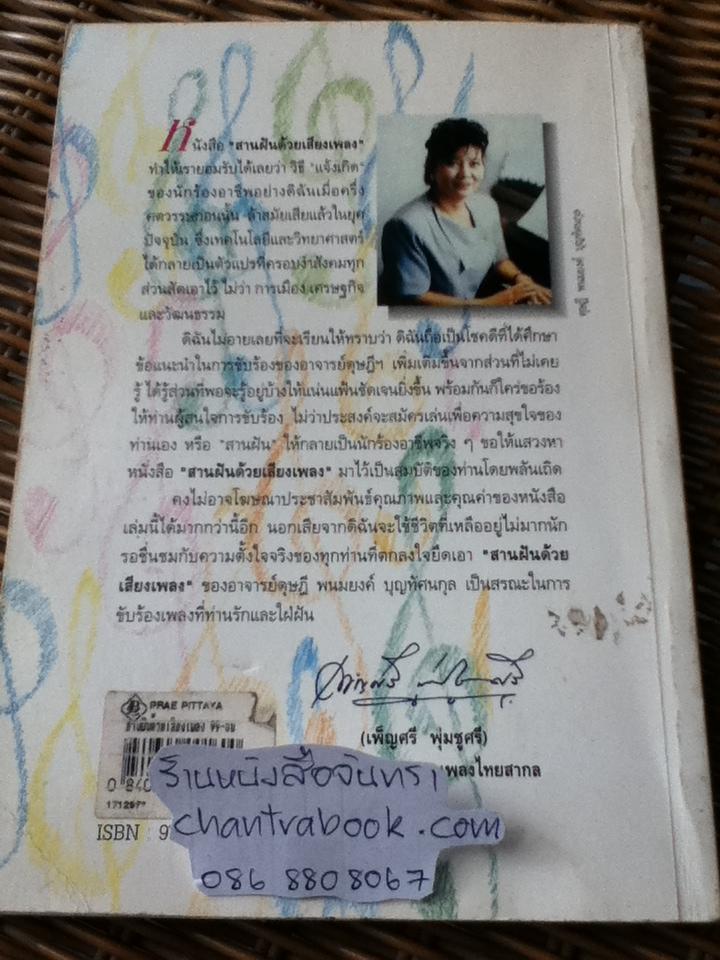 หนังสือ "สานฝันด้วยเสียงเพลง"
ทำให้เรายอมรับได้เลยว่า วิธี "แจ้งเกิด"
ของนักร้องอาชีพอย่างดิฉันเมื่อครึ่ง
ศตวรรษก่อนนั้น ล้าสมัยเสียแล้วในยุค
ปัจจุบัน ซึ่งเทคโนโลยีและวิทยาศาสตร์
ได้กลายเป็นตัวแปรที่ครอบงำสังคมทุก
ส่วนสัดเอาไว้ ไม่ว่า การเมือง เศรษฐกิจ
และวัฒนธรรม
ดิฉันไม่อายเลยที่จะเรียนให้ทราบว่า ดิฉันถือเป็นโชคดีที่ได้ศึกษา
ข้อแนะนำในการขับร้องของอาจารย์ดุษฎีฯ เพิ่มเติมขึ้นจากส่วนที่ไม่เคย
รู้ ได้รู้ส่วนที่พอจะรู้อยู่บ้างให้แน่นแฟ้นชัดเจนยิ่งขึ้น พร้อมกันก็ใคร่ขอร้อง
ให้ท่านผู้สนใจการขับร้อง ไม่ว่าประสงค์จะสมัครเล่นเพื่อความสุขใจของ
ท่านเอง หรือ "สานฝัน" ให้กลายเป็นนักร้องอาชีพจริง ๆ ขอให้แสวงหา
หนังสือ "สานฝันด้วยเสียงเพลง" มาไว้เป็นสมบัติของท่านโดยพลันเถิด
คงไม่อาจโฆษณาประชาสัมพันธ์คุณภาพและคุณค่าของหนังสือ
เล่มนี้ได้มากกว่านี้อีก นอกเสียจากดิฉันจะใช้ชีวิตที่เหลืออยู่ไม่มากนัก
รอชื่นชมกับความตั้งใจจริงของทุกท่านที่ตกลงใจยึดเอา "สานฝันด้วย
เสียงเพลง" ของอาจารย์ดุษฎี พนมยงค์ บุญทัศนกุล เป็นสรณะในการ
ขับร้องเพลงที่ท่านรักและใฝ่ฝัน
(เพ็ญศรี พุ่มชูศรี)
เพลงไทยสากล
PRAE PITTAYA
171297
ISBN : 9
ร้านหนังสือจันทรา
chantrabook.com
086 8808067